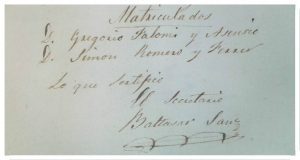 Matriculados
D. Gregorio Palomi y Asensio
D. Simon Romero y Ferrer
Lo que certifico
El Secretario
Baltasar Sanz